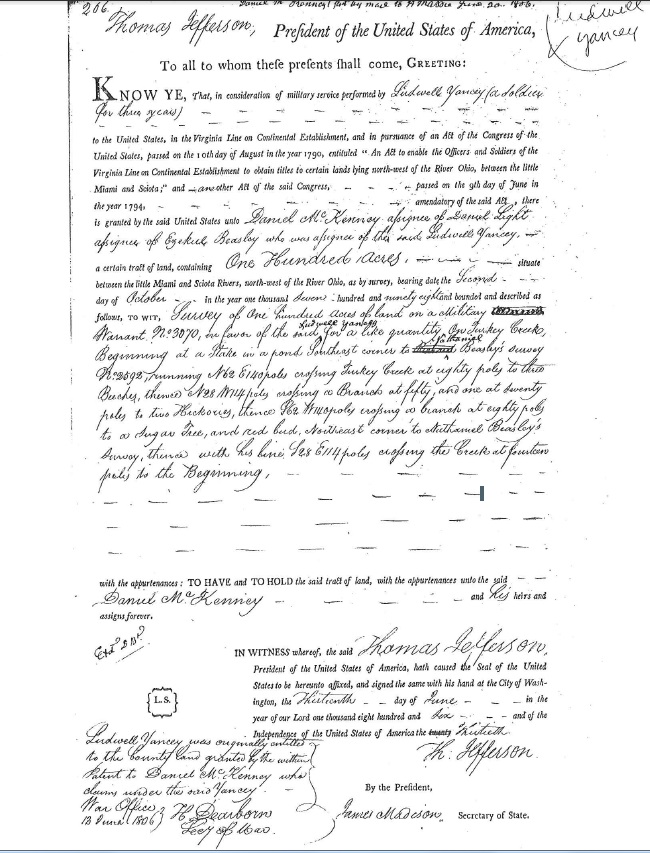 206.
Daniel Mc Kenney sent by mail to H Massie June 20. 1806.
Ludwell
Yancey
Thomas Jefferson, President of the United States of America,
To all to whom these presents shall come, GREETING:
KNOW YE, That, in consideration of military service performed by Ludwell Yancey (a soldier
for three years)
to the United States, in the Virginia Line on Continental Establishment, and in pursuance of an Act of the Congress of the
United States, passed on the 10th day of August in the year 1790, entituled "An Act to enable the Officers and Soldiers of the
Virginia Line on Continental Establishment to obtain titles to certain lands lying north-west of the River Ohio, between the little
Miami and Sciota;" and another Act of the said Congress, passed on the 9th day of June in
the year 1794, amendatory of the said Act, there
is granted by the said United States unto Daniel Mc Kenney assignee of Daniel Light
assignee of Ezekiel Beasley who was assignee of the said Ludwell Yancey,
a certain tract of land, containing One Hundred Acres, situate
between the little Miami and Sciota Rivers, north-west of the River Ohio, as by survey, bearing date the Second
day of October in the year one thousand seven hundred and ninety eight and bounded and described as
follows, TO WIT, Survey of One hundred acres of land on a Military
Warrant No. 3070, in favor of the said Ludwell Yancey for a like quantity On Turkey Creek,
Beginning at a Stake in a pond Southeast corner to Nathaniel Beasley's survey
No. 2592, running N62 E140 poles crossing Turkey Creek at eighty poles to three
Beeches, thence N28 W114 poles crossing a Branch at fifty, and one at seventy
poles to two Hickories, thence S62 W140 poles crossing a branch at eighty poles
to a Sugar Tree, and red bud, Northeast corner to Nathaniel Beasley's
survey, thence with his line S28 E114 poles crossing the Creek at fourteen
poles to the Beginning,
with the appurtenances: TO HAVE and TO HOLD the said tract of land, with the appurtenances unto the said
Daniel Mc Kenney and his heirs and
assigns forever.
IN WITNESS whereof, the said Thomas Jefferson,
President of the United States of America, hath caused the Seal of the United
States to be hereunto affixed, and signed the same with his hand at the City of Wash-
ington, the Thirteenth day of June in the
year of our Lord one thousand eight hundred and six and of the
Independence of the United States of America the twenty Thirtieth
L.S.
Th: Jefferson
Ludwell Yancey was originally entitled
to the bounty land granted by the within
Patent to Daniel Mc Kenney who
claims under the said Yancey.
War Office
13 June 1806
H. Dearborn
Secy of War.
By the President,
James Madison, Secretary of State.